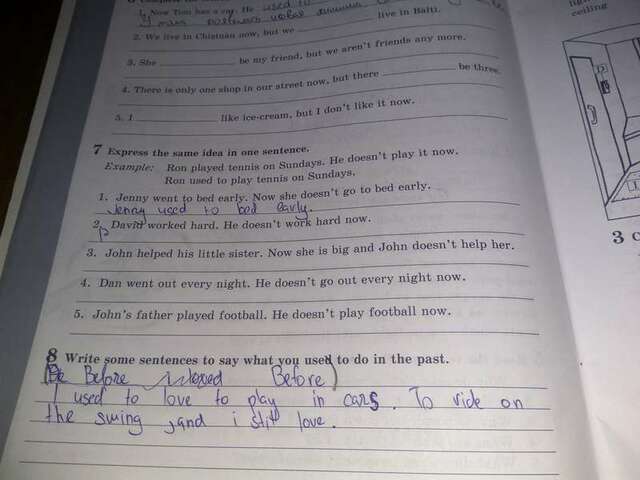 1. Now Tom has a car. He used to
2. We live in Chistuan now, but we ____ live in Balti.
3. She ____ be my friend, but we aren't friends any more.
4. There is only one shop in our street now, but there ____ be three.
5. I ____ like ice-cream, but I don't like it now.
7 Express the same idea in one sentence.
Example: Ron played tennis on Sundays. He doesn't play it now.
Ron used to play tennis on Sundays.
1. Jenny went to bed early. Now she doesn't go to bed early.
Jenny used to bed early.
2. David worked hard. He doesn't work hard now.
3. John helped his little sister. Now she is big and John doesn't help her.
4. Dan went out every night. He doesn't go out every night now.
5. John's father played football. He doesn't play football now.
8 Write some sentences to say what you used to do in the past.
(Be Before Before)
I used to love to play in cars. To ride on
the swing, and i still love.
ceiling
3